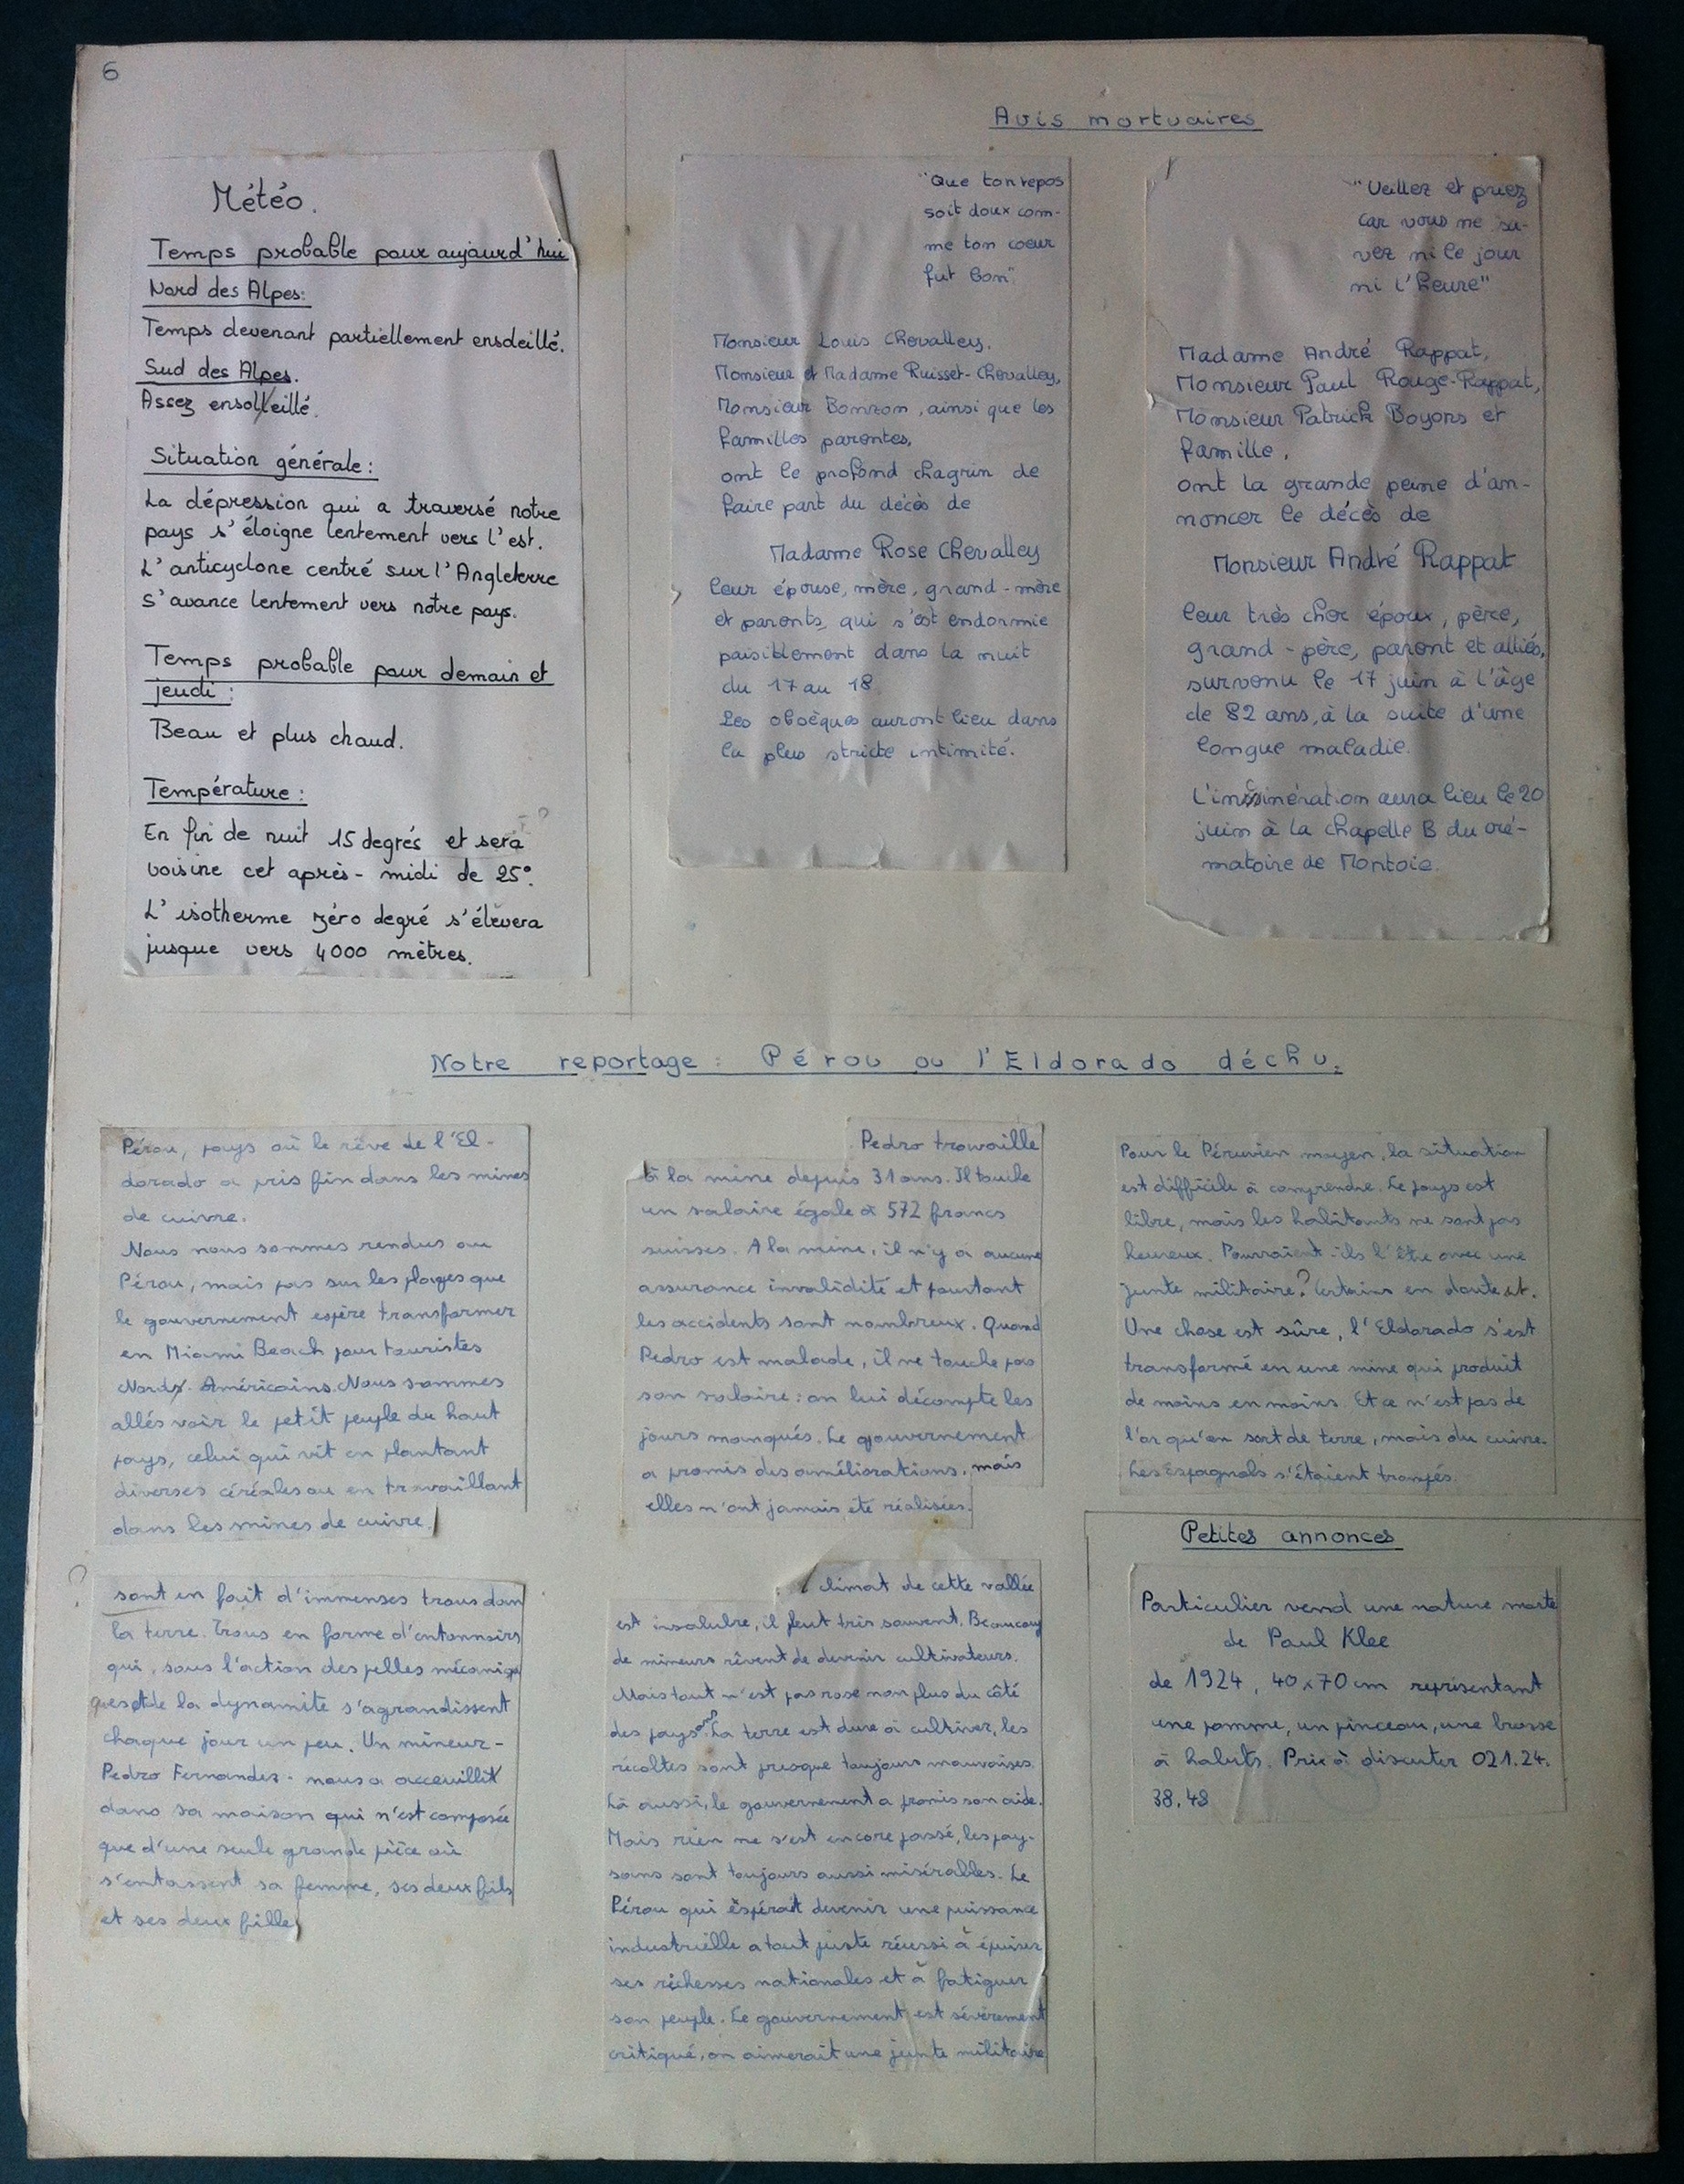 6
Météo.
Temps probable pour aujourd'hui
Nord des Alpes:
Temps devenant partiellement ensoleillé.
Sud des Alpes.
Assez ensolleillé.
Situation générale:
La dépression qui a traversé notre
pays s'éloigne lentement vers l'est.
L'anticyclone centré sur l'Angleterre
s'avance lentement vers notre pays.
Temps probable pour demain et
jeudi:
Beau et plus chaud.
Température:
En fin de nuit 15 degrés et sera ?
voisine cet après-midi de 25°.
L'isotherme zéro degré s'élèvera
jusque vers 4000 mètres.
Avis mortuaires
"Que ton repos
soit doux com-
me ton coeur
fut bon".
Monsieur Louis Chevalley,
Monsieur et Madame Ruisset-Chevalley,
Monsieur Bonzon, ainsi que les
familles parentes,
ont le profond chagrin de
faire part du décès de
Madame Rose Chevalley
leur épouse, mère, grand-mère
et parents, qui s'est endormie
paisiblement dans la nuit
du 17 au 18.
Les obsèques auront lieu dans
la plus stricte intimité.
"Veillez et priez
car vous ne sa-
vez ni le jour
ni l'heure"
Madame André Rappat,
Monsieur Paul Rouge-Rappat,
Monsieur Patrick Boyons et
famille,
ont la grande peine d'an-
noncer le décès de
Monsieur André Rappat
leur très cher époux, père,
grand-père, parent et alliés,
survenu le 17 juin à l'âge
de 82 ans, à la suite d'une
longue maladie.
L'incinération aura lieu le 20
juin à la chapelle B du cré-
matoire de Montoie.
Notre reportage: Pérou ou l'Eldorado déchu.
Pérou, pays où le rêve de l'El-
dorado a pris fin dans les mines
de cuivre.
Nous nous sommes rendus au
Pérou, mais pas sur les plages que
le gouvernement espère transformer
en Miami Beach pour touristes
Nord-Américains. Nous sommes
allés voir le petit peuple du haut
pays, celui qui vit en plantant
diverses céréales ou en travaillant
dans les mines de cuivre.
? sont en fait d'immenses trous dan
la terre. Trous en forme d'entonnoirs
qui, sous l'action des pelles mécaniq
ues et de la dynamite s'agrandissent
chaque jour un peu. Un mineur-
Pedro Fernandez- nous a acceuillit
dans sa maison qui n'est composée
que d'une seule grande pièce où
s'entassent sa femme, ses deux fils
et ses deux filles
Pedro travaille
à la mine depuis 31 ans. Il touche
un salaire égale à 572 francs
suisses. A la mine, il n'y a aucune
assurance invalidité et pourtant
les accidents sont nombreux. Quand
Pedro est malade, il ne touche pas
son salaire: on lui décompte les
jours manqués. Le gouvernement
a promis des améliorations, mais
elles n'ont jamais été réalisées.
climat de cette vallée
est insalubre, il pleut très souvent. Beaucoup
de mineurs rêvent de devenir cultivateurs.
Mais tout n'est pas rose non plus du côté
des paysans. La terre est dure à cultiver, les
récoltes sont presque toujours mauvaises.
Là aussi, le gouvernement a promis son aide.
Mais rien ne s'est encore passé, les pay-
sans sont toujours aussi misérables. Le
Pérou qui espérait devenir une puissance
industrielle a tout juste réussi à épuiser
ses richesses nationales et à fatiguer
son peuple. Le gouvernement est sévèrement
critiqué, on aimerait une junte militaire
Pour le Péruvien moyen, la situation
est difficile à comprendre. Le pays est
libre, mais les habitants ne sont pas
heureux. Pourraient-ils l'être avec une
junte militaire? Certains en doutent.
Une chose est sûre, l'Eldorado s'est
transformé en une mine qui produit
de moins en moins. Et ce n'est pas de
l'or qu'on sort de terre, mais du cuivre.
Les Espagnols s'étaient trompés.
Petites annonces
Particulier vend une nature morte
de Paul Klee
de 1924, 40x70 cm représentant
une pomme, un pinceau, une brosse
à habits. Prix à discuter 021.24.
38.48